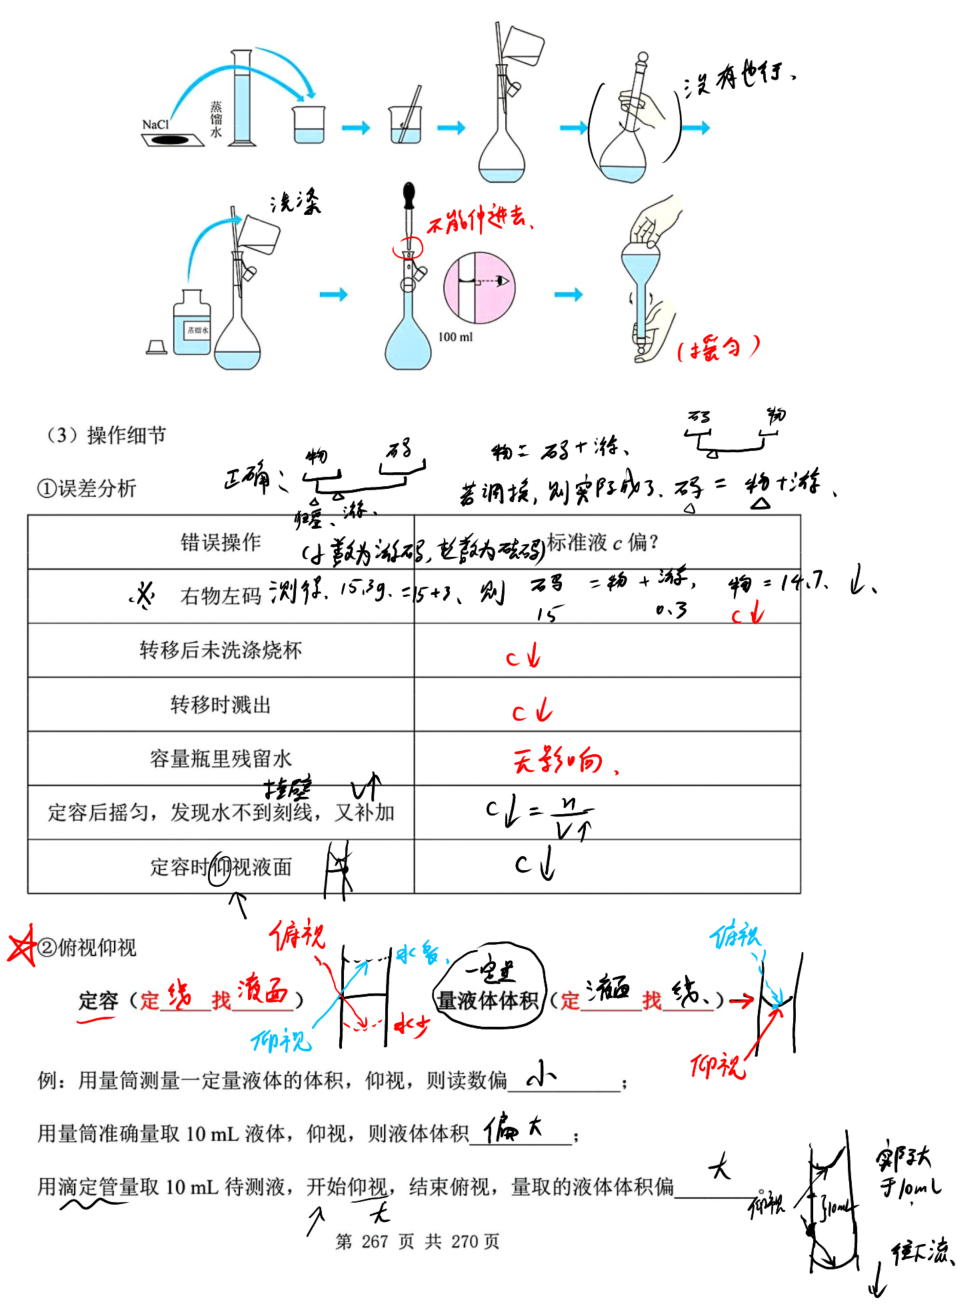 NaCl
蒸馏水
没有也行、
洗涤
不能伸进去、
蒸馏水
100 ml
（摇匀）
（3）操作细节
码 物
物 码
正确：
物=码+游、
①误差分析
若调换，则实际成了、码=物+游、
归零、游、
错误操作
(小数为游码，整数为砝码)
标准液 c 偏？
右物左码
测得、15.3g.=15+3、则 码=物+游，物=14.7、↓、
15 0.3 c↓
转移后未洗涤烧杯
c↓
转移时溅出
c↓
容量瓶里残留水
无影响、
挂壁 V↑
定容后摇匀，发现水不到刻线，又补加
c↓=n/V↑
定容时仰视液面
c↓
②俯视仰视
俯视
水多、
一定量
俯视
定容（定 线 找 液面 ）
量液体体积（定 液面 找 线、 ）
仰视
水少
仰视
例：用量筒测量一定量液体的体积，仰视，则读数偏 小 ；
用量筒准确量取 10 mL 液体，仰视，则液体体积 偏大 ；
用滴定管量取 10 mL 待测液，开始仰视，结束俯视，量取的液体体积偏 大 。
大
仰视
10mL
实际大于10mL
往下流、
第 267 页 共 270 页